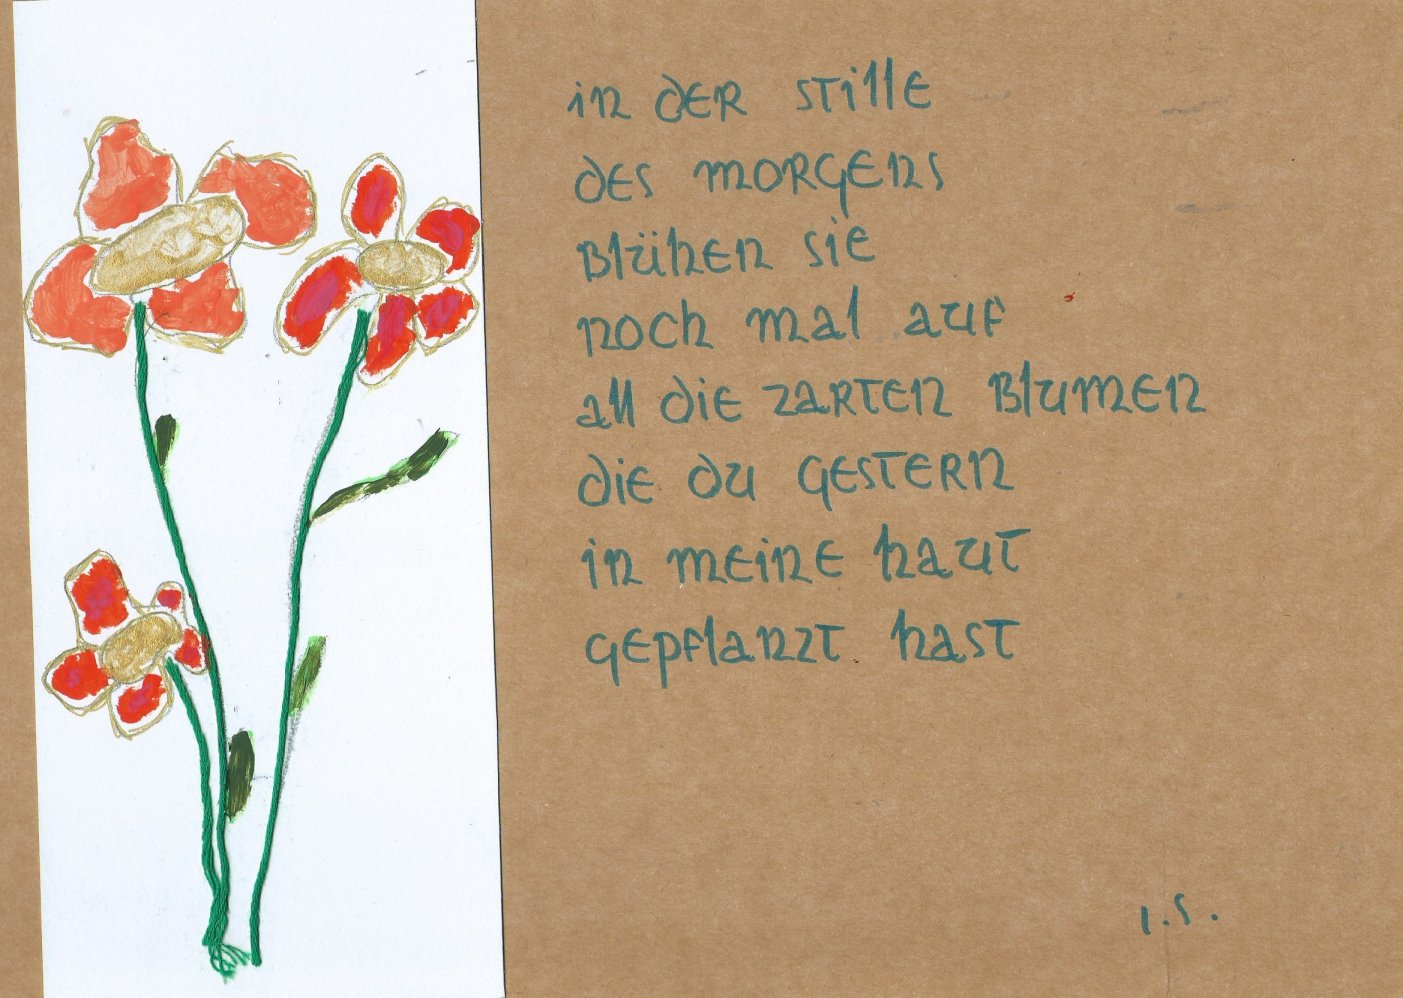 in der stille
des morgens
blühen sie
noch mal auf
all die zarten blumen
die du gestern
in meine haut
gepflanzt hast
i.s.